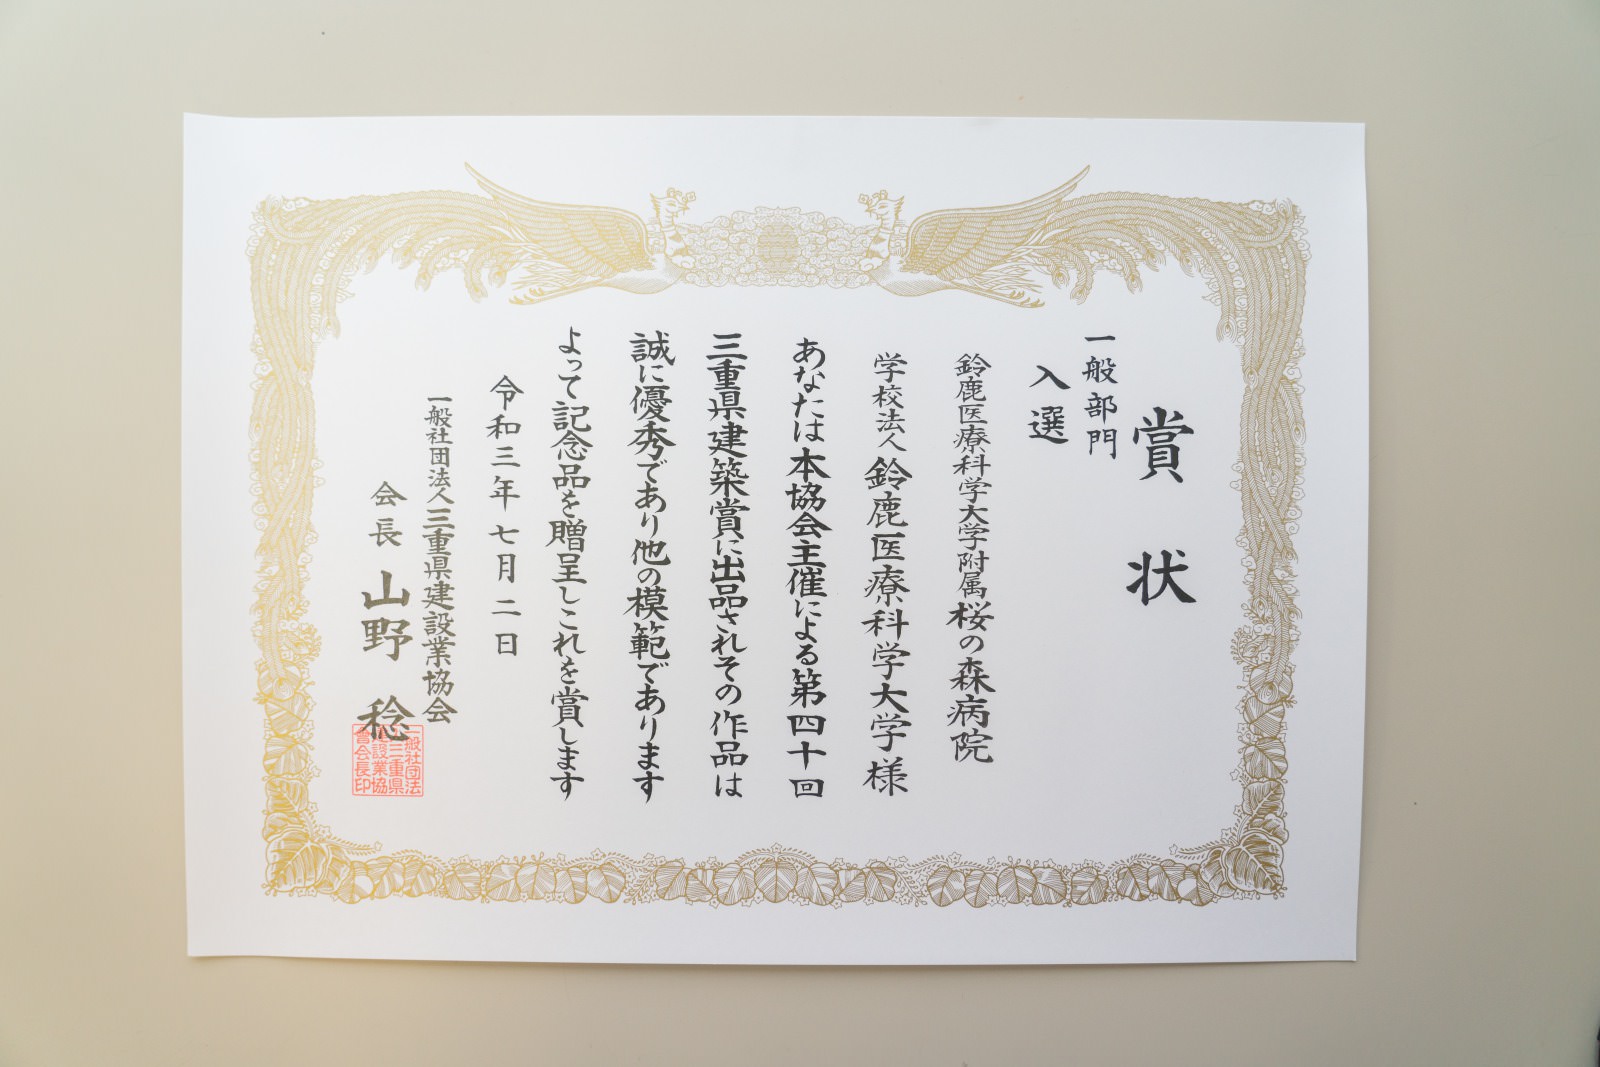 賞状
一般部門
入選
鈴鹿医療科学大学附属桜の森病院
学校法人鈴鹿医療科学大学様
あなたは本協会主催による第四十回
三重県建築賞に出品されその作品は
誠に優秀であり他の模範であります
よって記念品を贈呈しこれを賞します
令和三年七月二日
一般社団法人三重県建設業協会
会長 山野 稔
一般社団法
人三重県
建設業協
會会長印